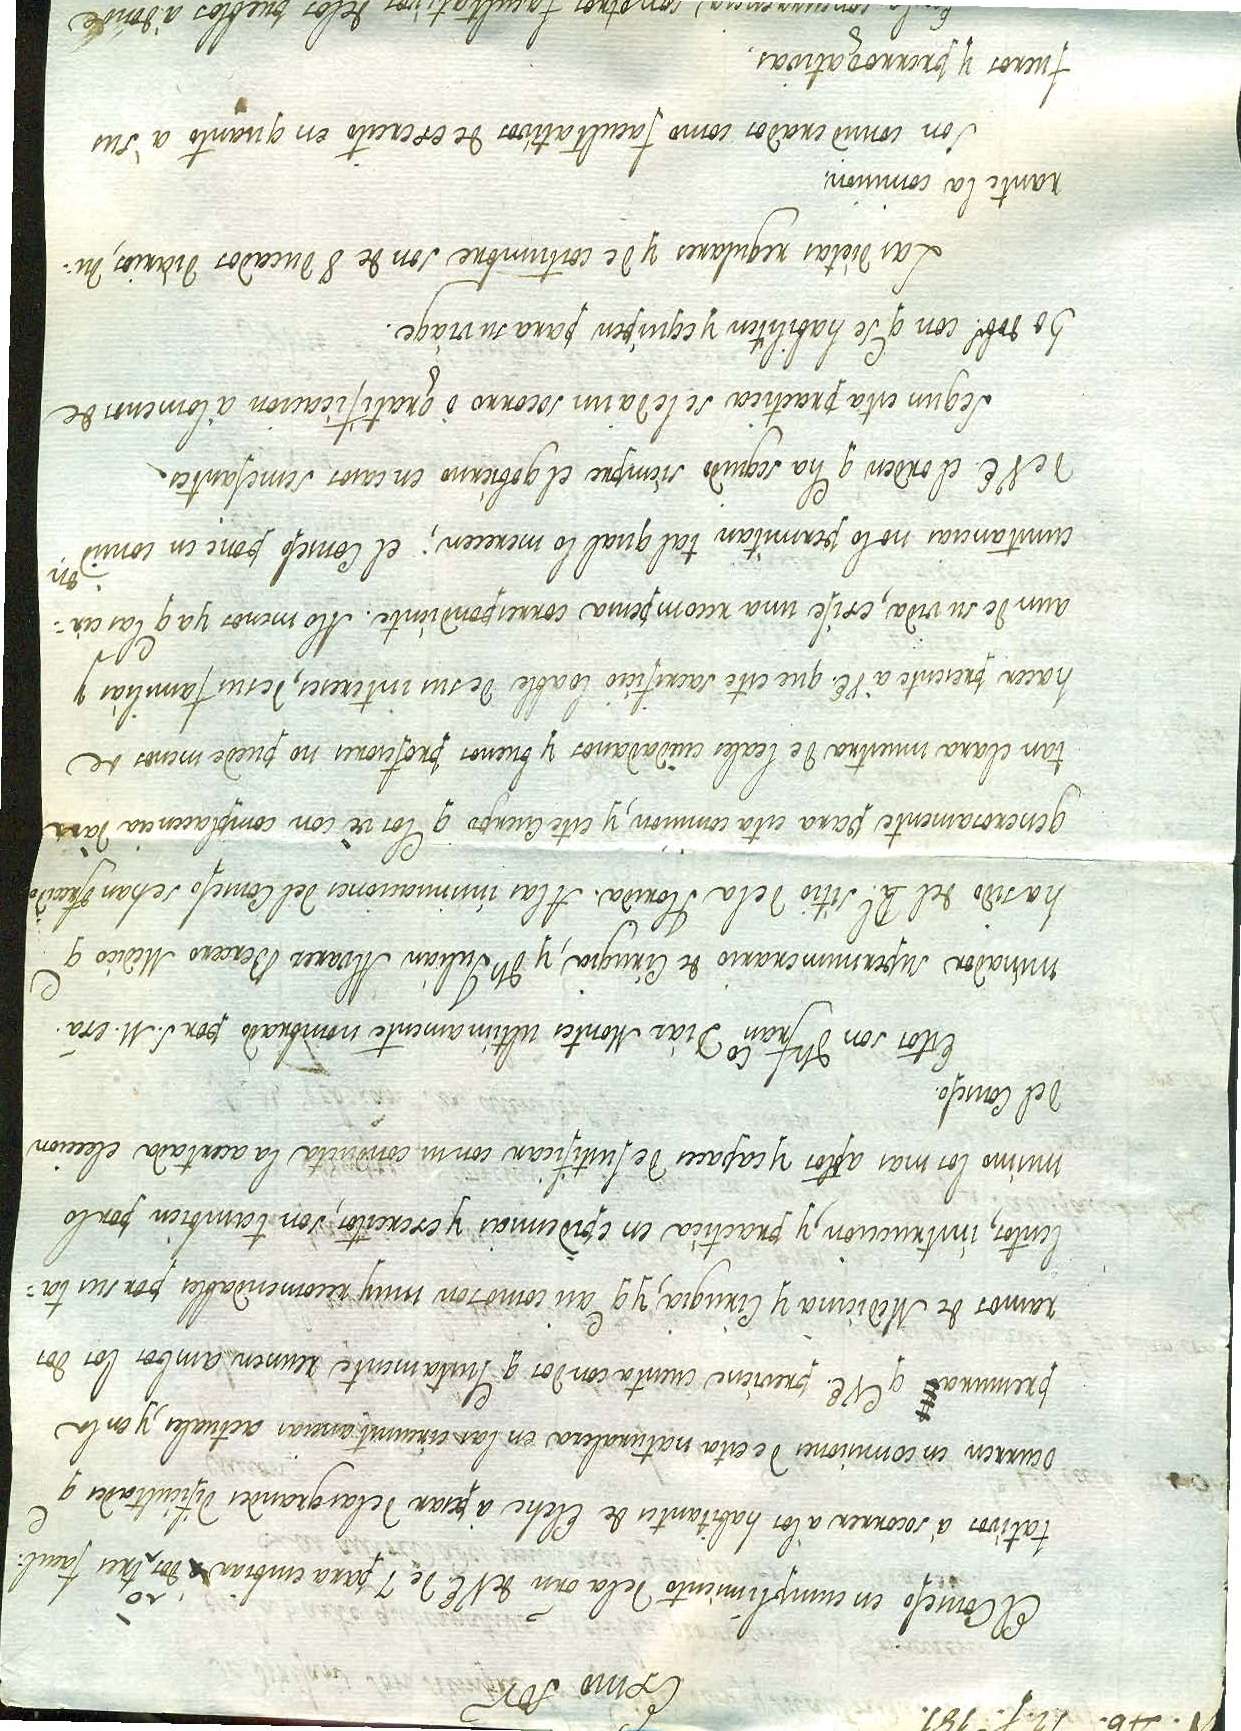 Exmo Sor
El Consejo en cumplimiento de la orn de VE. de 7 para embiar dos, ò tres facul=
tativos à socorrer a los habitantes de Elche à pesar de las grandes dificultades q
ocurren en comisiones de esta naturaleza en las circunstancias actuales, y en la
premura q VE. previene cuenta con dos q Juntamente reunen ambos los dos
ramos de Medicina y Cirugia, y q asi como son muy recomendables por sus ta=
lentos, instruccion, y practica en epidemias y exercitos, son tambien por lo
mismo los mas aptos y capaces de Justificar con su conducta la acertada eleccion
del Consejo.
Estos son Dn Franco Diaz Montes ultimamente nombrado por S. M. exa-
minador supernumerario de Cirugia, y Dn Julian Alvarez Bercero Medico q
ha sido del Rl Sitio de la Florida. A las insinuaciones del Consejo se han ofrecido
generosamente para esta comision, y este Cuerpo q los vè con complacencia dar
tan clara muestra de leales ciudadanos y buenos profesores no puede menos de
hacer presente à VE. que este sacrificio loable de sus intereses, de sus familias y
aun de su vida, exije una recompensa correspondiente. Alo menos ya q las cir=
cunstancias no lo permitan tal qual lo merecen; el Consejo pone en considon
de VE. el orden q ha seguido siempre el gobierno en casos semejantes.
Segun esta practica se le da un socorro ò gratificacion a lo menos de
con q se habiliten y equipen para su viage.
Las dietas regulares y de costumbre son de 8 Ducados diarios, du=
rante la comision.
Son considerados como facultativos de exercito en quanto a sus
fueros y prerrogativas.
En la concurrencia con otros facultativos de los pueblos à donde